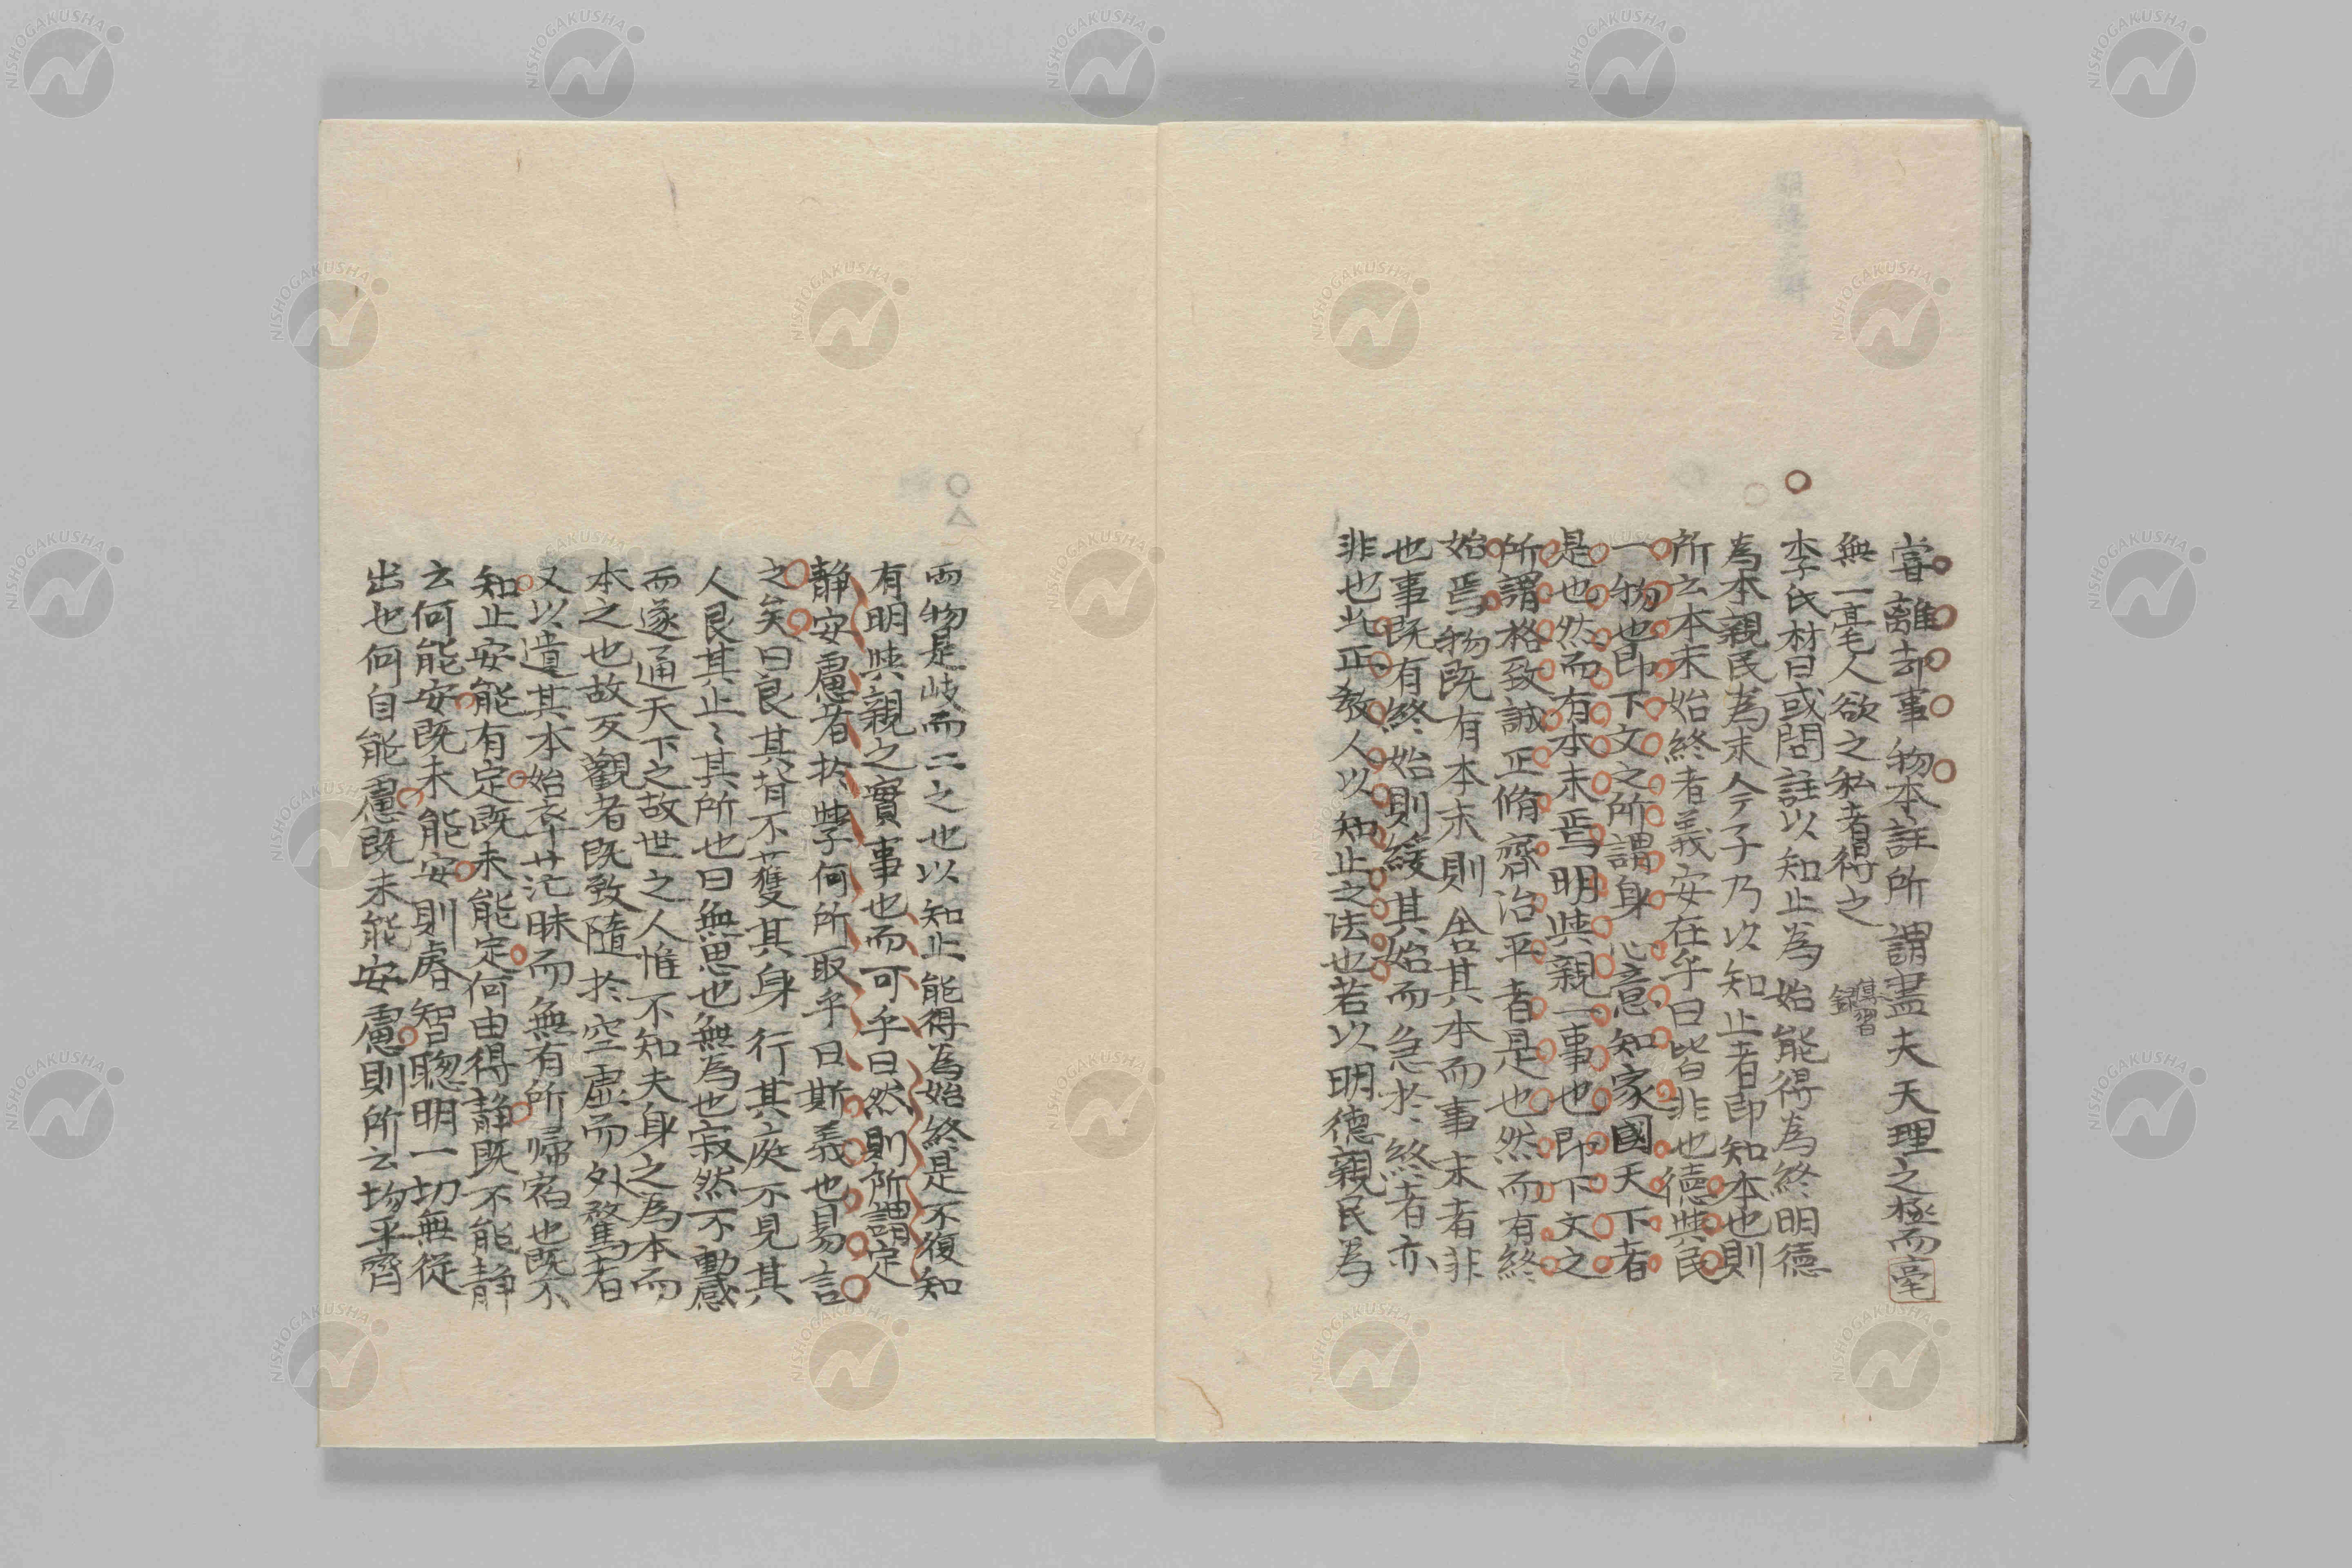 嘗離却事物本註所謂盡夫天理之極而毫
無一毫人欲之私者得之傳習録
李氏材曰或問註以知止為始能得為終明德
為本親民為末今子乃以知止者即知本也則
所云本末始終者義安在乎曰皆非也德與民
一物也即下文之所謂身心意知家國天下者
是也然而有本末焉明與親一事也即下文之
所謂格致誠正脩齊治平者是也然而有終
始焉物既有本末則舍其本而事末者非
也事既有終始則緩其始而急於終者亦
非也此正教人以知止之法也若以明德親民為
両物是歧而二之也以知止能得為始終是不復知
有明與親之實事也而可乎曰然則所謂定
静安慮者於學何所取乎曰斯義也易言
之矣曰艮其背不獲其身行其庭不見其
人艮其止〻其所也曰無思也無為也寂然不動感
而遂通天下之故世之人惟不知夫身之為本而
本之也故反觀者既致隨於空虛而外騖者
又以遺其本始卒茫昧而無有所帰宿也既不
知止安能有定既未能定何由得静既不能静
云何能安既未能安則睿智聰明一切無從
出也何自能慮既未能安慮則所云均平齊
NISHOGAKUSHA